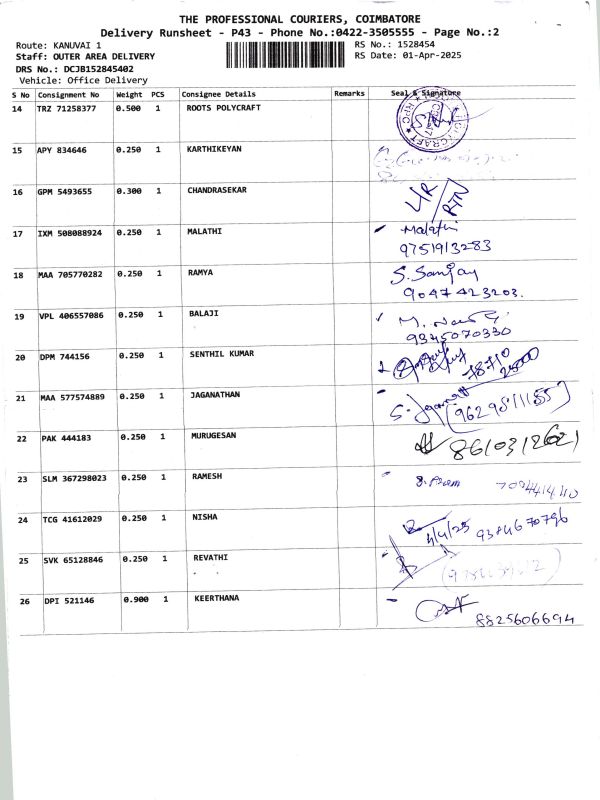 THE PROFESSIONAL COURIERS, COIMBATORE
Delivery Runsheet - P43 - Phone No.:0422-3505555 - Page No.:2
Route: KANUVAI 1
RS No.: 1528454
Staff: OUTER AREA DELIVERY
RS Date: 01-Apr-2025
DRS No.: DCJB152845402
Vehicle: Office Delivery
S No Consignment No Weight PCS Consignee Details Remarks Seal & Signature
14 TRZ 71258377 0.500 1 ROOTS POLYCRAFT
15 APY 834646 0.250 1 KARTHIKEYAN
16 GPM 5493655 0.300 1 CHANDRASEKAR
RTN
17 IXM 508088924 0.250 1 MALATHI Malathi
9751913283
18 MAA 705770282 0.250 1 RAMYA S. Sanjay
9047423203.
19 VPL 406557086 0.250 1 BALAJI
9345070330
20 DPM 744156 0.250 1 SENTHIL KUMAR
21 MAA 577574889 0.250 1 JAGANATHAN
22 PAK 444183 0.250 1 MURUGESAN
8610312621
23 SLM 367298023 0.250 1 RAMESH
24 TCG 41612029 0.250 1 NISHA
4/4/25 9384670796
25 SVK 65128846 0.250 1 REVATHI
26 DPI 521146 0.900 1 KEERTHANA
8825606694